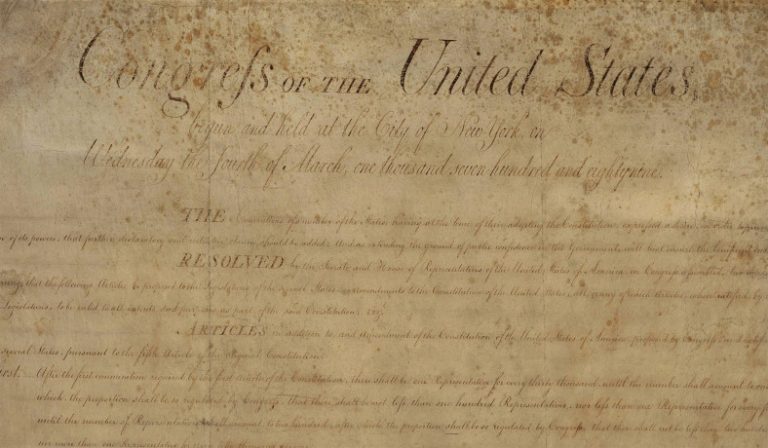 Congreſs OF THE United States,
begun and held at the City of New York, on
Wednesday the Fourth of March, one thousand seven hundred and eighty nine.
THE Conventions of a number of the States, having at the time of their adopting the Constitution, expressed a desire, in order to prevent
of its powers, that further declaratory and restrictive clauses should be added: And as extending the ground of public confidence in the Government, will best ensure the
RESOLVED by the Senate and House of Representatives of the United States of America, in Congreſs aſsembled, two thirds
that the following Articles be proposed to the Legislatures of the several States, as amendments to the Constitution of the United States, all, or any of which Articles, when ratified by
Legislatures, to be valid to all intents and purposes, as part of the said Constitution; viz.
ARTICLES in addition to, and Amendment of the Constitution of the United States of America, proposed by Congreſs, and
several States, pursuant to the fifth Article of the original Constitution.
After the first enumeration required by the first Article of the Constitution, there shall be one Representative for every thirty thousand, until the number shall amount to one
which, the proportion shall be so regulated by Congreſs, that there shall be not leſs than one hundred Representatives, nor leſs than one Representative for every
until the number of Representatives shall amount to two hundred, after which the proportion shall be so regulated by Congreſs, that there shall not be leſs than two hundred
nor more than one Representative for every fifty thousand persons.